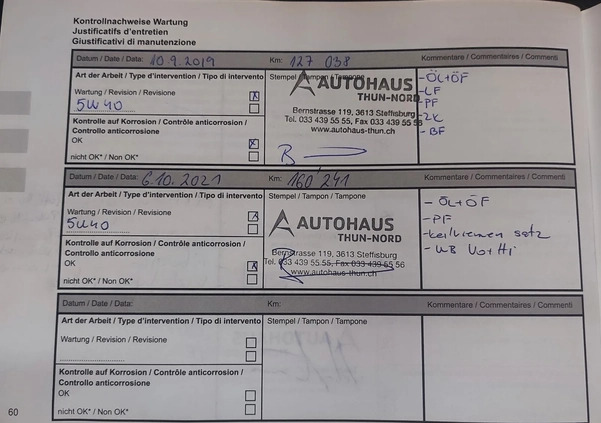 Kontrollnachweise Wartung
Justificatifs d'entretien
Giustificativi di manutenzione
Datum / Date / Data: 10.9.2019 Km: 127 038 Kommentare / Commentaires / Commenti
Art der Arbeit / Type d'intervention / Tipo di intervento Stempel / Tampon / Tampone
Wartung / Revision / Revisione
5W40
Kontrolle auf Korrosion / Contrôle anticorrosion /
Controllo anticorrosione
OK
nicht OK* / Non OK*
AUTOHAUS
THUN-NORD
Bernstrasse 119, 3613 Steffisburg
Tel. 033 439 55 55, Fax 033 439 55 56
www.autohaus-thun.ch
- ÖL+ÖF
- LF
- PF
- ZK
- BF
Datum / Date / Data: 6.10.2021 Km: 160 241 Kommentare / Commentaires / Commenti
Art der Arbeit / Type d'intervention / Tipo di intervento Stempel / Tampon / Tampone
Wartung / Revision / Revisione
5W40
Kontrolle auf Korrosion / Contrôle anticorrosion /
Controllo anticorrosione
OK
nicht OK* / Non OK*
AUTOHAUS
THUN-NORD
Bernstrasse 119, 3613 Steffisburg
Tel. 033 439 55 55, Fax 033 439 55 56
www.autohaus-thun.ch
- ÖL+ÖF
- PF
- keilriemen satz
- WB Vo+Hi
Datum / Date / Data: Km: Kommentare / Commentaires / Commenti
Art der Arbeit / Type d'intervention / Tipo di intervento Stempel / Tampon / Tampone
Wartung / Revision / Revisione
Kontrolle auf Korrosion / Contrôle anticorrosion /
Controllo anticorrosione
OK
nicht OK* / Non OK*
60